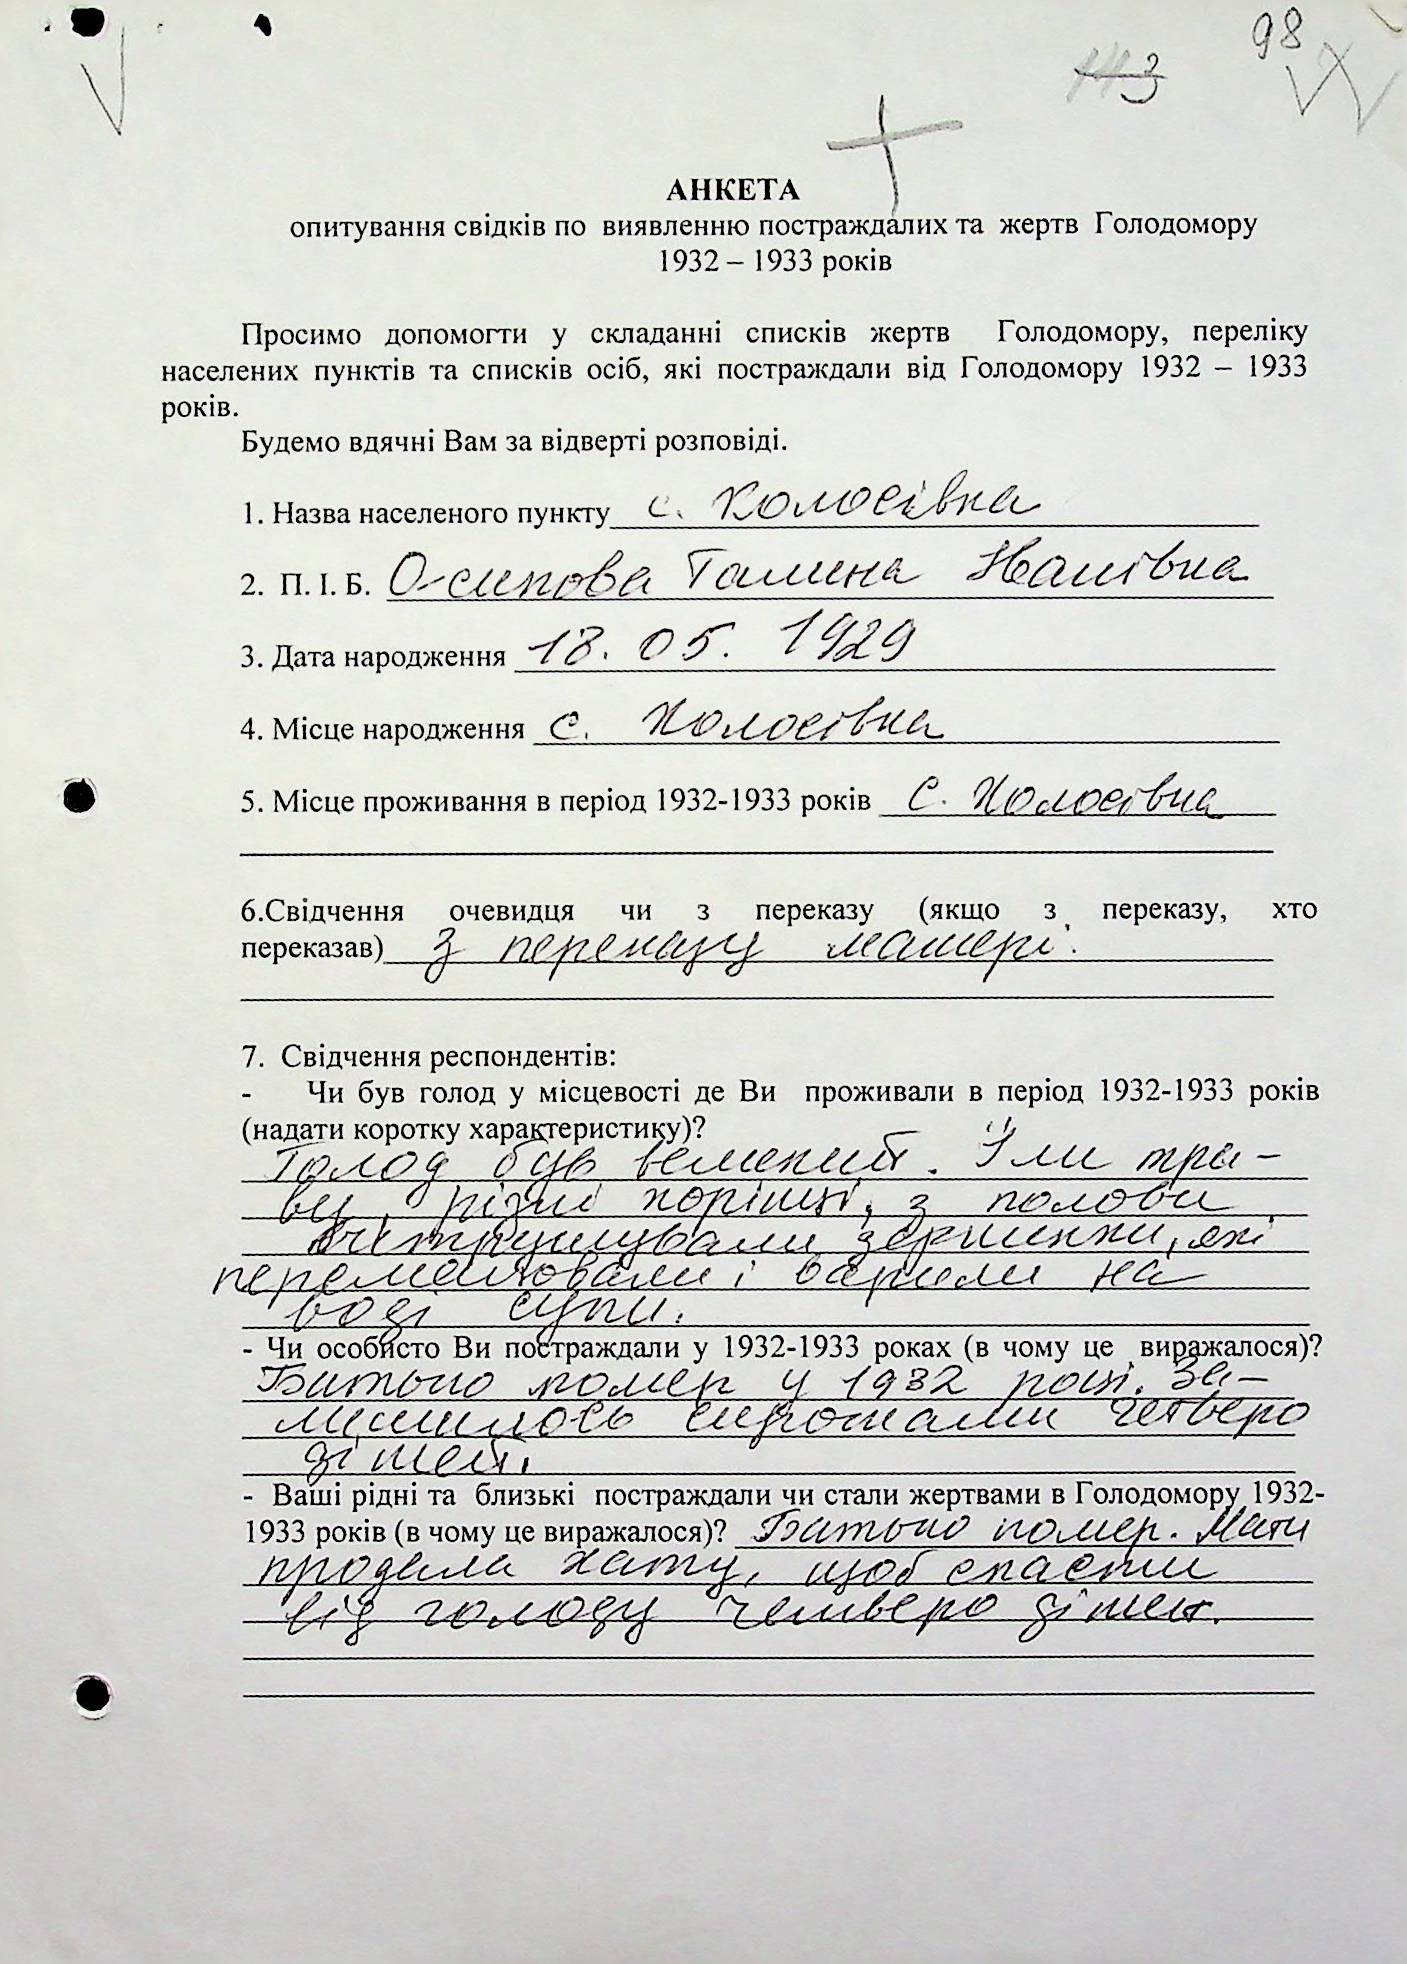 98
113
АНКЕТА
опитування свідків по виявленню постраждалих та жертв Голодомору
1932 – 1933 років
Просимо допомогти у складанні списків жертв Голодомору, переліку
населених пунктів та списків осіб, які постраждали від Голодомору 1932 – 1933
років.
Будемо вдячні Вам за відверті розповіді.
1. Назва населеного пункту с. Колосівка
2. П. І. Б. Осипова Галина Іванівна
3. Дата народження 18. 05. 1929
4. Місце народження с. Колосівка
5. Місце проживання в період 1932-1933 років с. Колосівка
6.Свідчення очевидця чи з переказу (якщо з переказу, хто
переказав) З переказу матері.
7. Свідчення респондентів:
- Чи був голод у місцевості де Ви проживали в період 1932-1933 років
(надати коротку характеристику)?
Голод був великий. Їли тра-
ву, різні корінці, з полови
витрушували зернинки, які
перемелювали і варили на
воді супи.
- Чи особисто Ви постраждали у 1932-1933 роках (в чому це виражалося)?
Батько помер у 1932 році. За-
лишилось сиротами четверо
дітей.
- Ваші рідні та близькі постраждали чи стали жертвами в Голодомору 1932-
1933 років (в чому це виражалося)? Батько помер. Мати
продала хату, щоб спасти
від голоду четверо дітей.